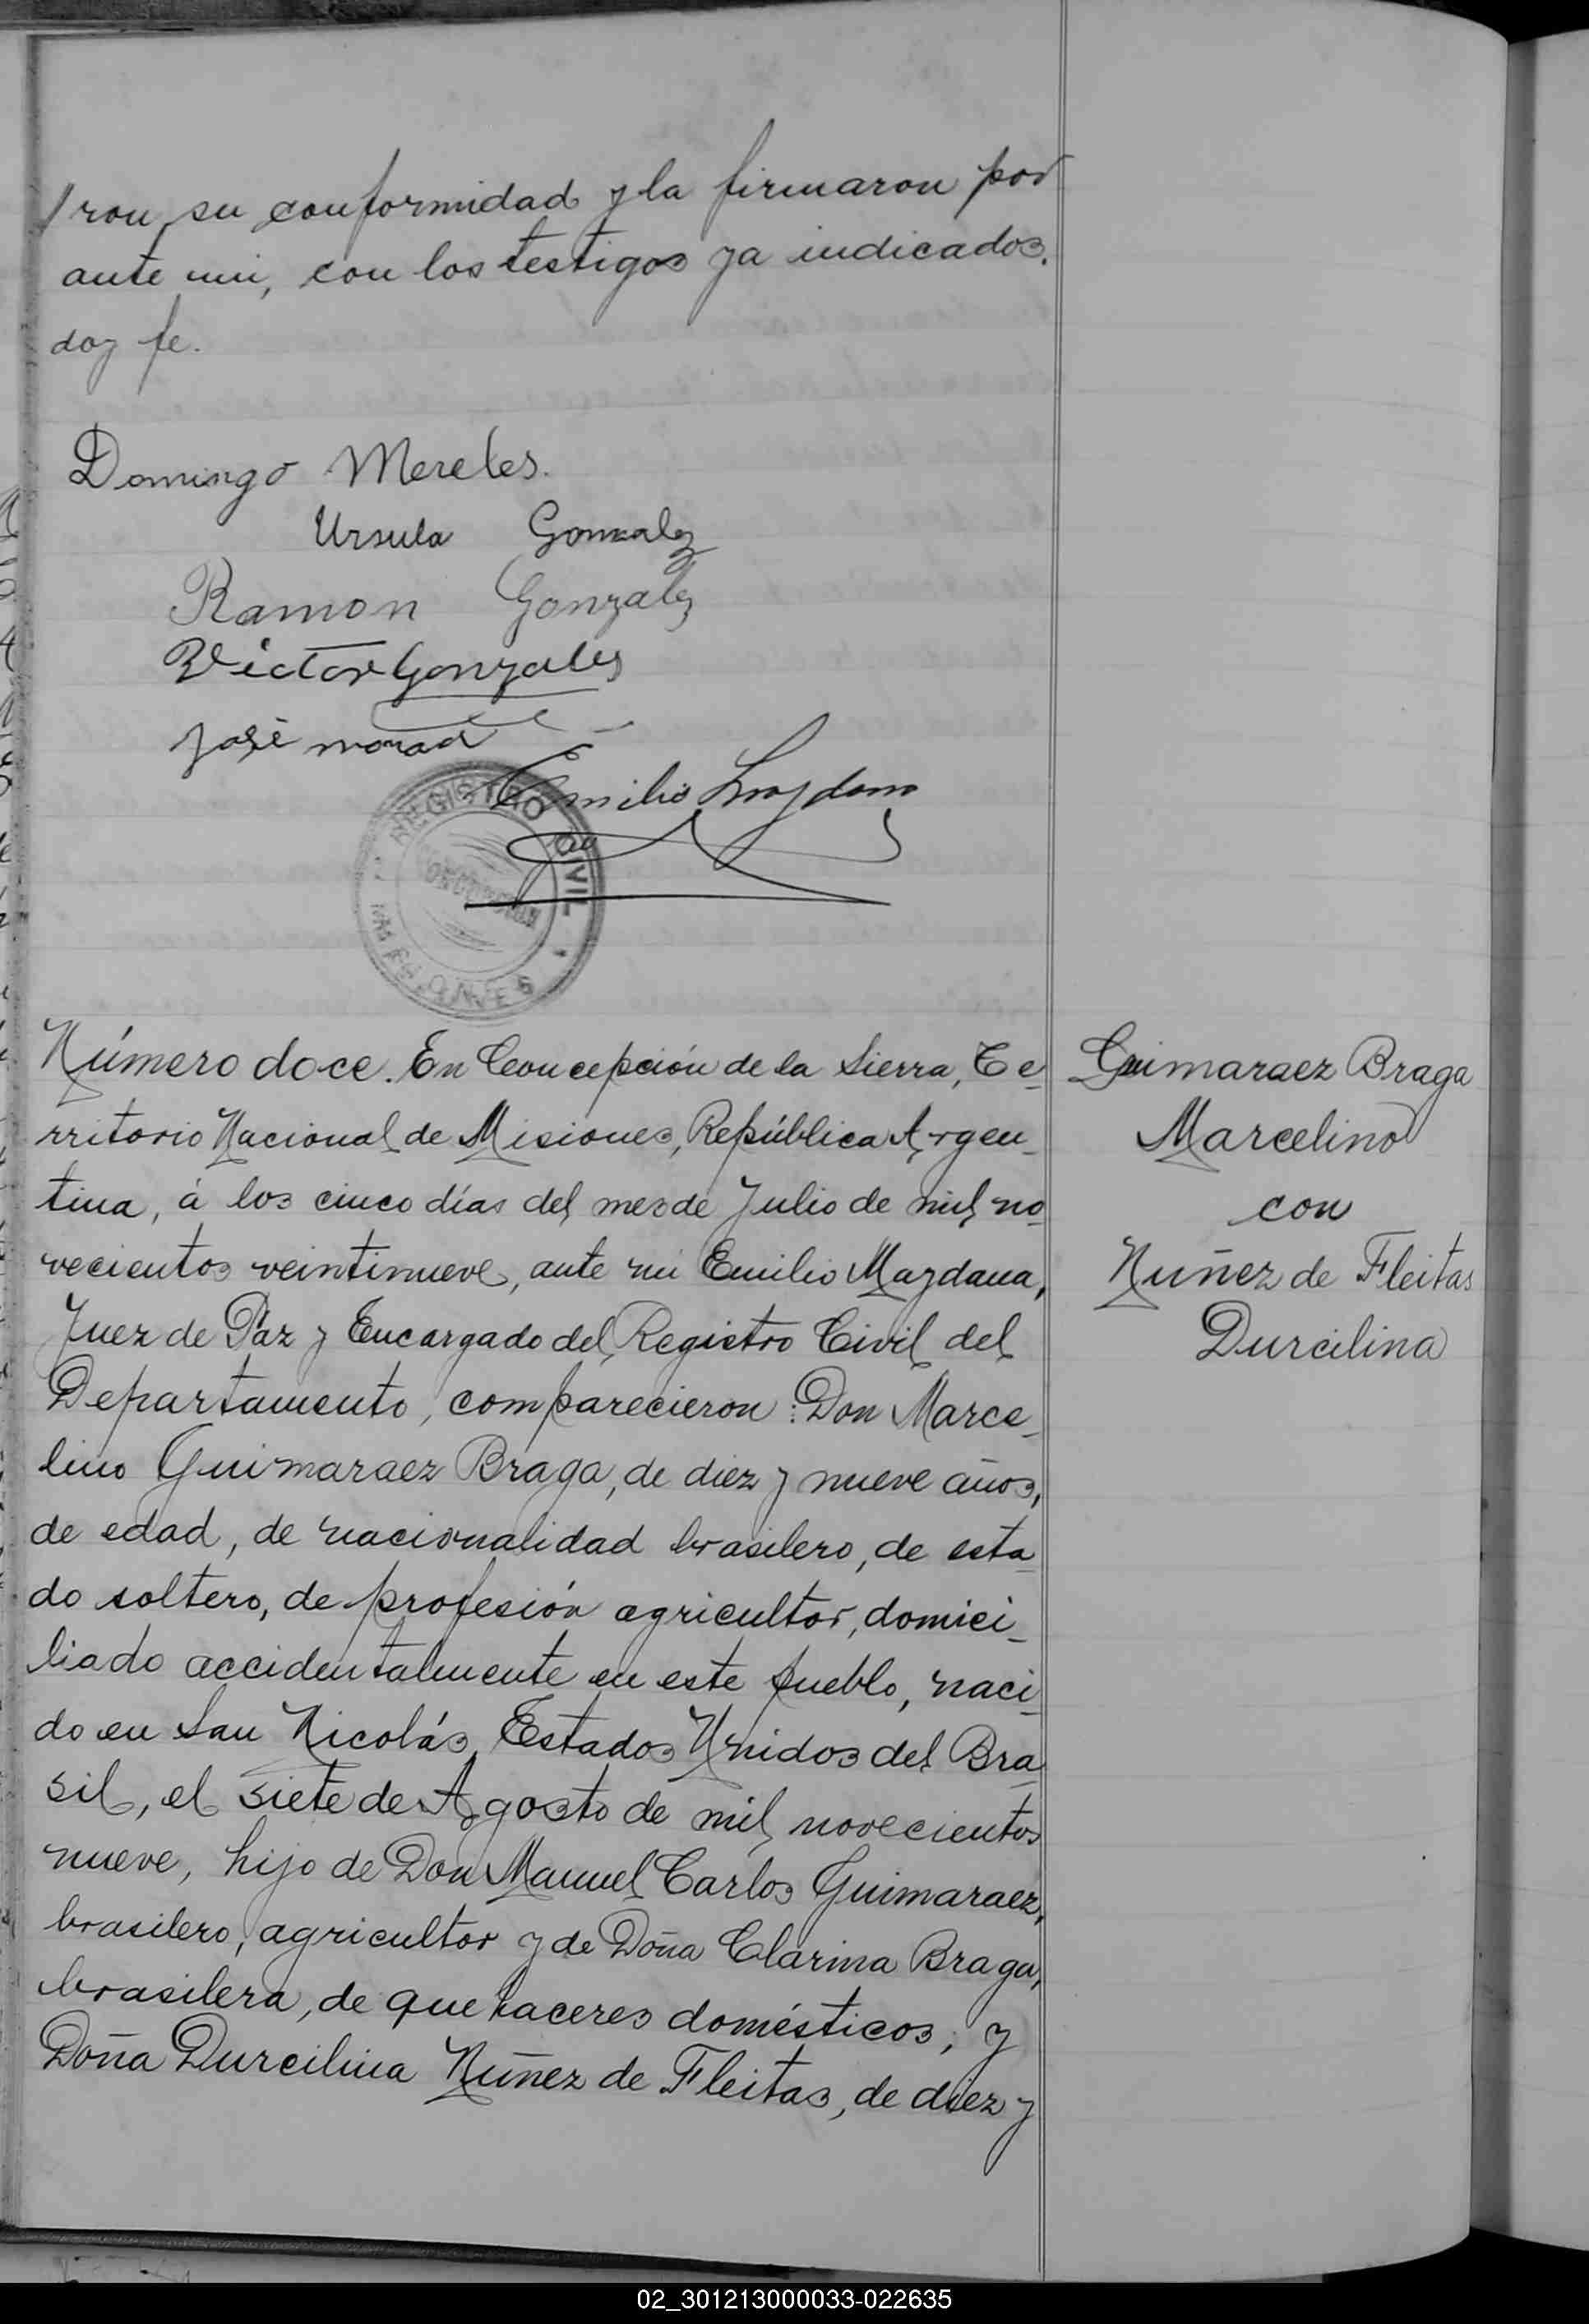 /ron su conformidad y la firmaron por
ante mi, con los testigos ya indicados.
doy fe.
Domingo Mereles.
Ursula Gonzalez
Ramon Gonzalez
Victor Gonzales
José morad
Emilio Maydana
REGISTRO CIVIL
Número doce. En Concepción de la Sierra, Te-
rritorio Nacional de Misiones, República Argen-
tina, á los cinco días del mes de Julio de mil no-
vecientos veintinueve, ante mi Emilio Maydana,
Juez de Paz y Encargado del Registro Civil del
Departamento, comparecieron: Don Marce-
lino Guimaraez Braga, de diez y nueve años,
de edad, de nacionalidad brasilero, de esta-
do soltero, de profesión agricultor, domici-
liado accidentalmente en este pueblo, naci-
do en San Nicolás, Estados Unidos del Bra-
sil, el siete de Agosto de mil novecientos
nueve, hijo de Don Manuel Carlos Guimaraez,
brasilero, agricultor y de Doña Clarina Braga,
brasilera, de que haceres domésticos; y
Doña Durcilina Nuñez de Fleitas, de diez y
Guimaraez Braga
Marcelino
con
Nuñez de Fleitas
Durcilina
02_301213000033-022635